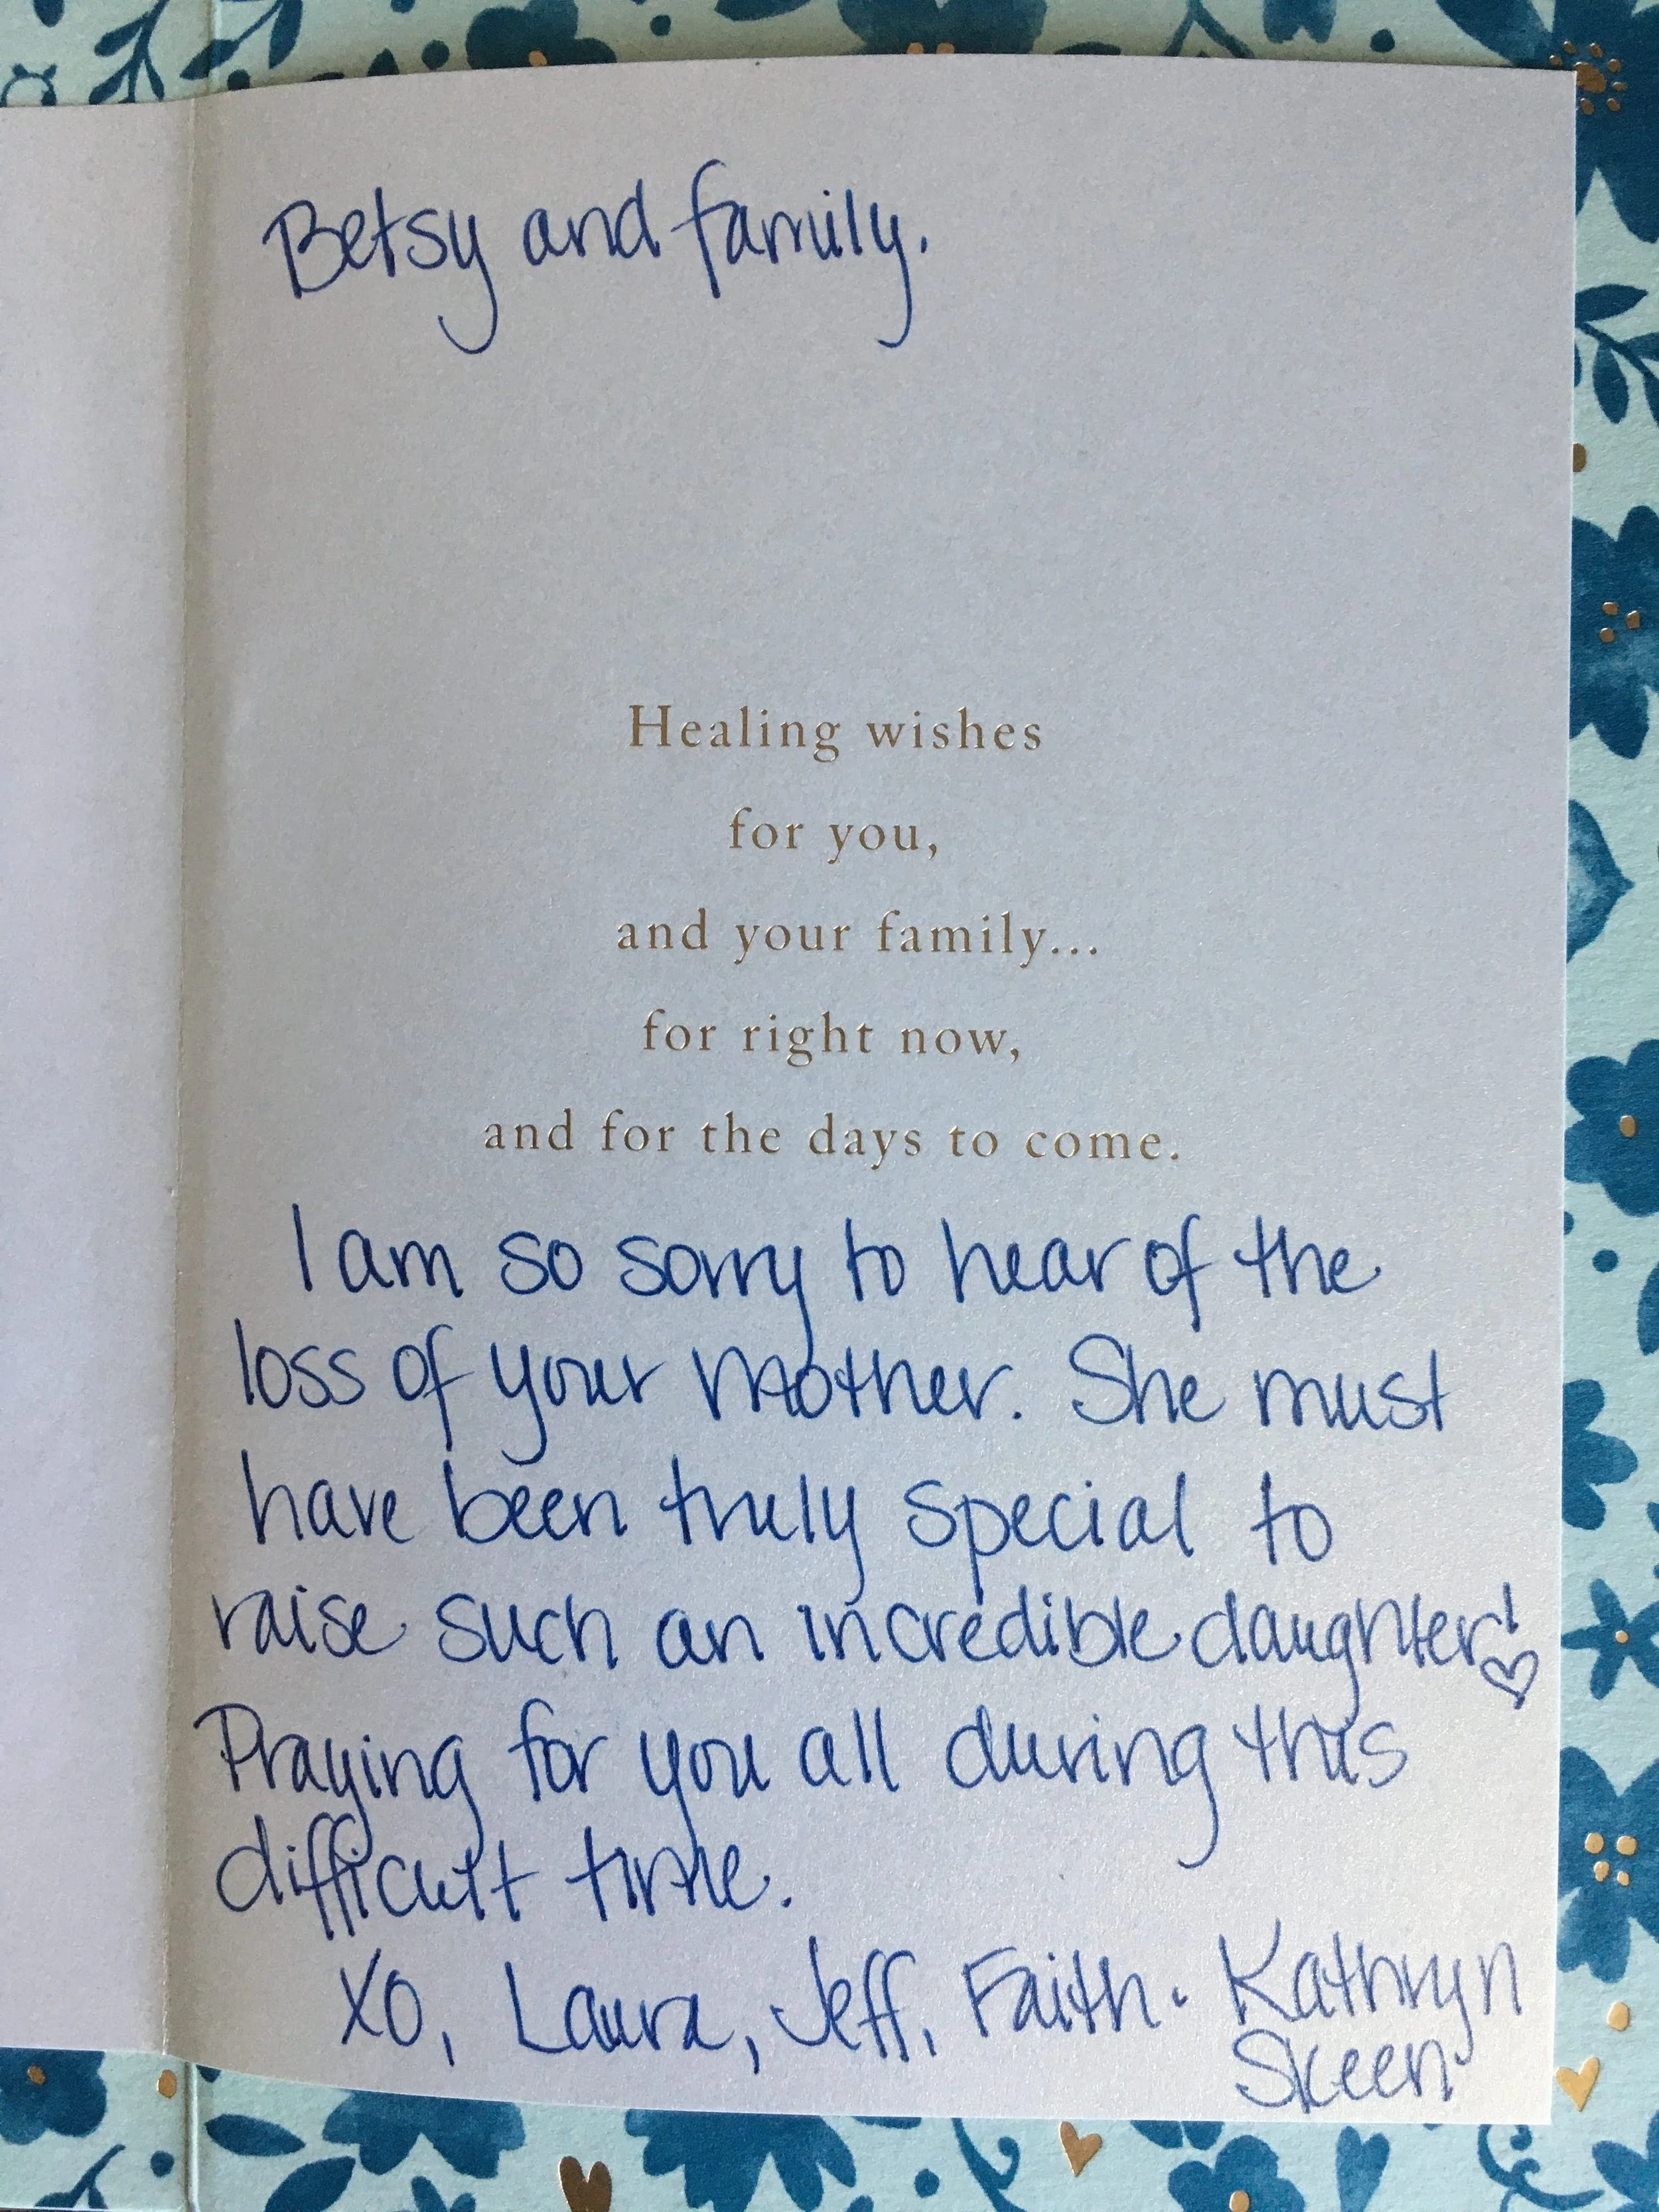 Betsy and family.
Healing wishes
for you,
and your family...
for right now,
and for the days to come.
I am so sorry to hear of the
loss of your mother. She must
have been truly special to
raise such an incredible daughter! ♡
Praying for you all during this
difficult time.
XO, Laura, Jeff, Faith · Kathryn
Skeen